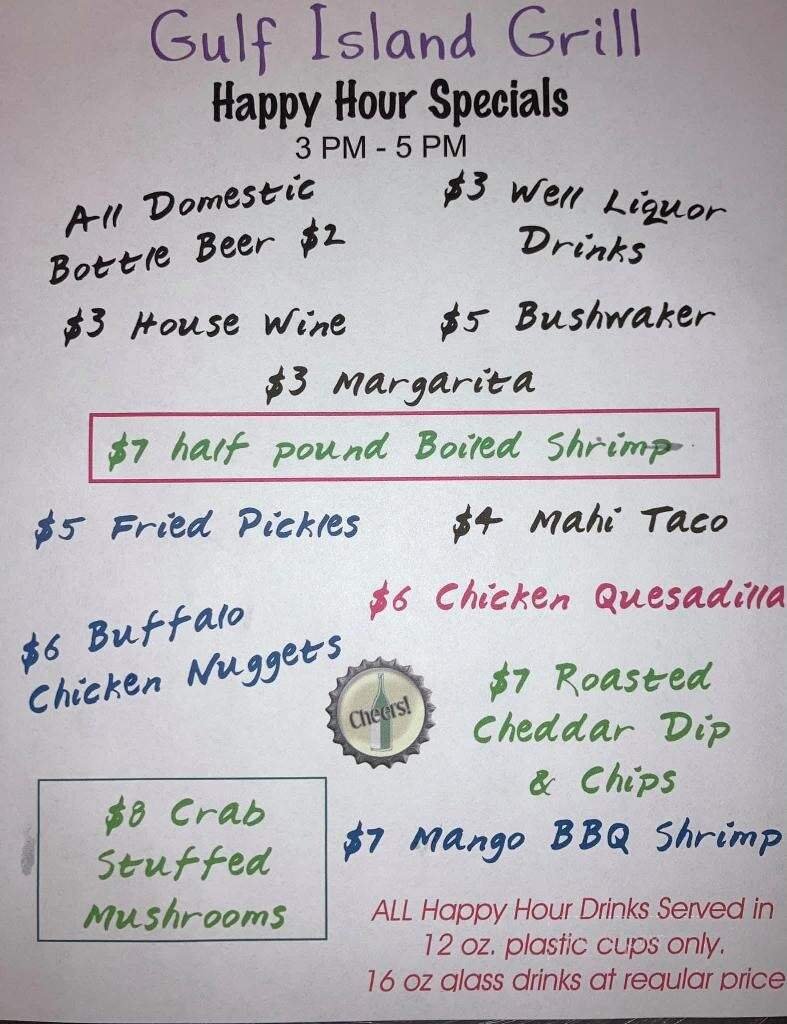 Gulf Island Grill
Happy Hour Specials
3 PM - 5 PM
All Domestic
Bottle Beer $2
$3 Well Liquor
Drinks
$3 House Wine
$5 Bushwaker
$3 Margarita
$7 half pound Boiled Shrimp
$5 Fried Pickles
$4 Mahi Taco
$6 Chicken Quesadilla
$6 Buffalo
Chicken Nuggets
Cheers!
$7 Roasted
Cheddar Dip
& Chips
$8 Crab
Stuffed
Mushrooms
$7 Mango BBQ Shrimp
ALL Happy Hour Drinks Served in
12 oz. plastic cups only.
16 oz glass drinks at regular price